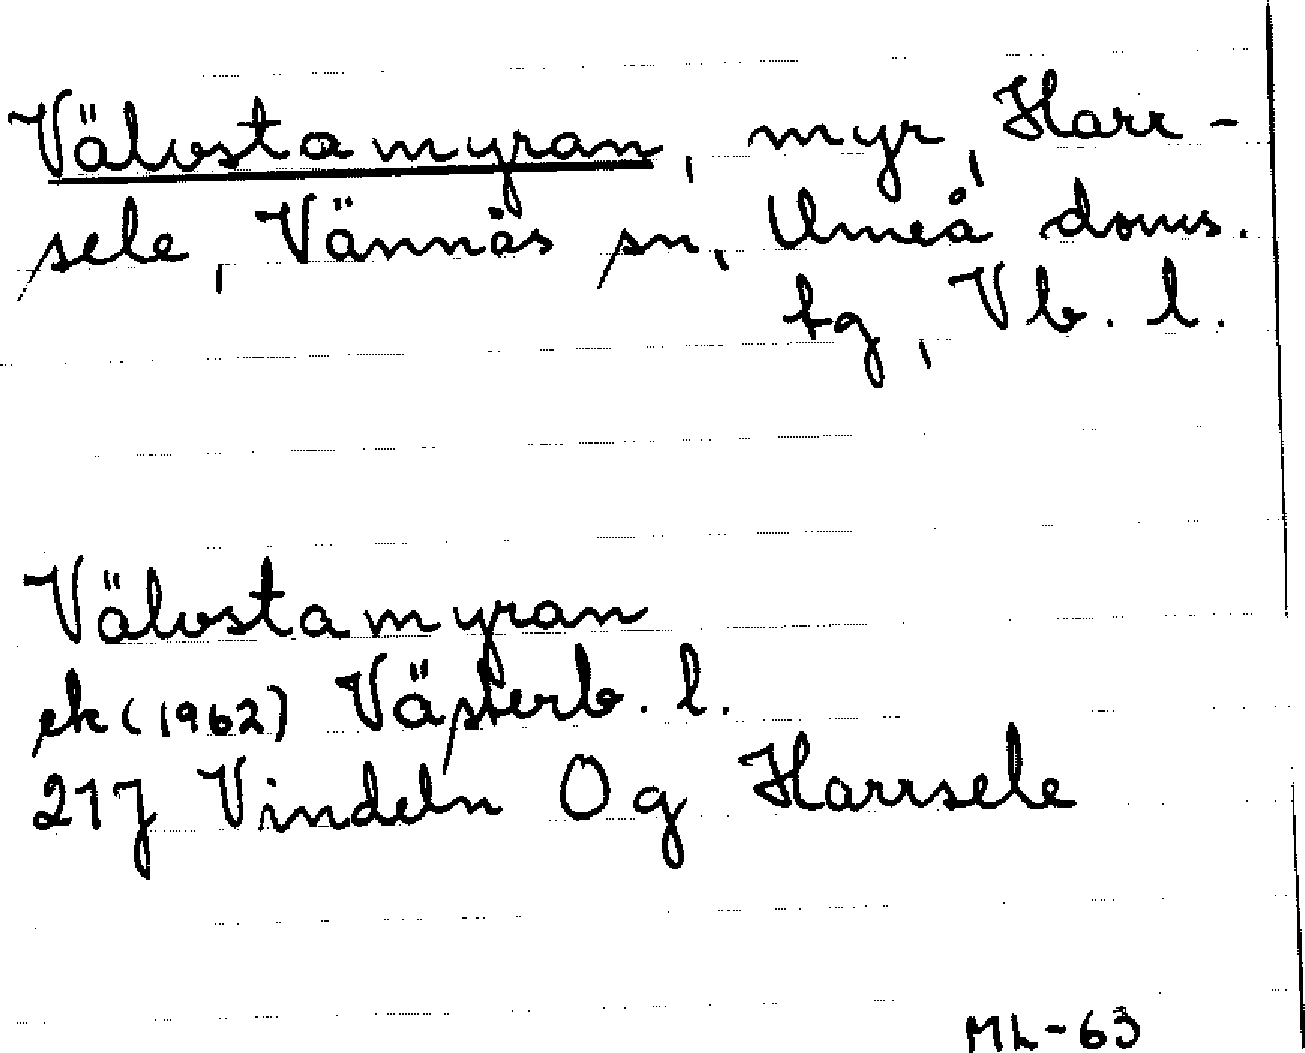 Välvstamyran, myr, Harr-
sele, Vännäs sn, Umeå doms.
tg, Vb. l.
Välvstamyran
ek (1962) Västerb. l.
21J Vindeln Og Harrsele
ML-63